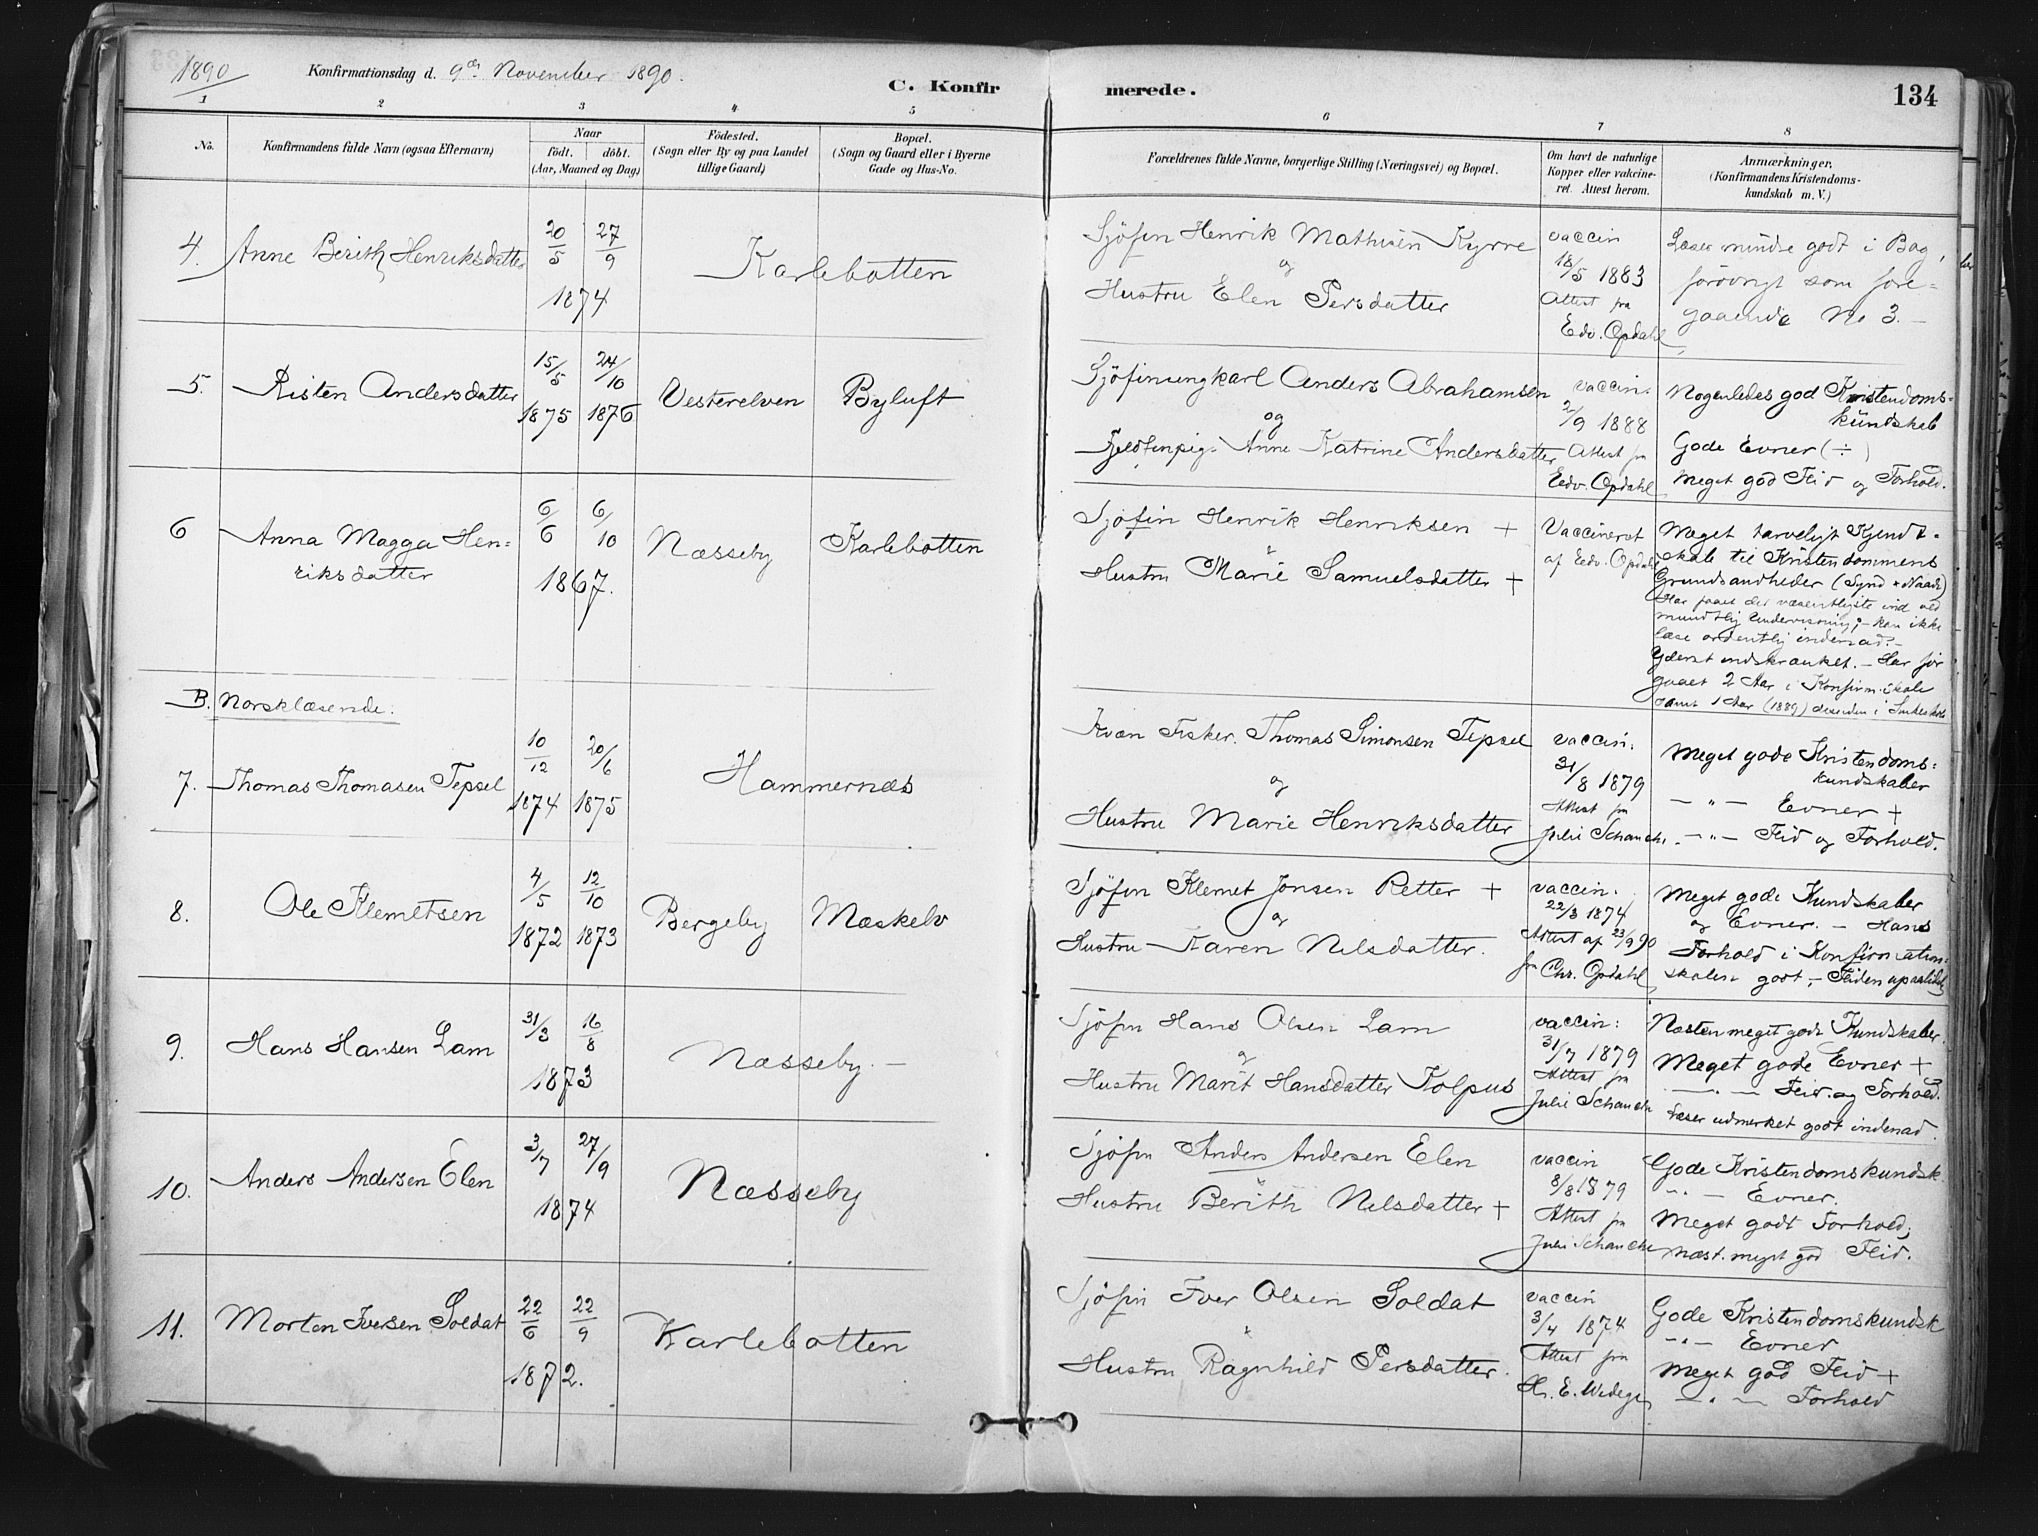 1890
Konfirmationsdag d. 9de November 1890.
C. Konfirmerede.
134
1 2 3 4 5 6 7 8
No.
Konfirmandens fulde Navn (ogsaa Efternavn)
Naar
födt. döbt.
(Aar, Maaned og Dag)
Födested.
(Sogn eller By og paa Landet
tillige Gaard)
Bopæl.
(Sogn og Gaard eller i Byerne
Gade og Hus-No.
Forældrenes fulde Navne, borgerlige Stilling (Næringsvei) og Bopæl.
Om havt de naturlige
Kopper eller vakcine-
ret. Attest herom.
Anmærkninger.
(Konfirmandens Kristendoms-
kundskab m. V.)
4. Anne Berith Henriksdatter
20/5 27/9
1874
Karlebotten
Sjöfin Henrik Mathisen Kyrre
og
Hustru Elen Persdatter
vaccin
18/5 1883
Attest fra
Edv. Opdahl
Læser mindre godt i Bog,
forövrigt som fore-
gaaende No 3.-
5. Risten Andersdatter
15/5 24/10
1875 1876
Vesterelven
Byluft
Sjöfinungkarl Anders Abrahamsen
og
Fjeldfinpig. Anne Katrine Andersdatter
vaccin.
2/9 1888
Attest fra
Edv. Opdahl
Nogenledes god Kristendoms-
kundskab
Gode Evner (÷)
Meget god Flid og Forhold.
6 Anna Magga Hen-
riksdatter
6/6 6/10
1867.
Næsseby
Karlebotten
Sjöfin Henrik Henriksen +
&
Hustru Marie Samuelsdatter +
Vaccineret
af Edv. Opdahl
Meget tarveligt Kjendt-
skab til Kristendommens
Grundsandheder (Synd + Naade)
Har faaet det væsentligste ind ved
mundtlig Undervisning; - kan ikke
læse ordentlig indenad.-
Yderst indskrænket. - Har för
gaaet 2 Aar i Konfirm.skole
samt 1 Aar (1889) desuden i
B. Norsklæsende:
7. Thomas Thomasen Tepsel
10/12 20/6
1874 1875
Hammernæs
Kvæn Fisker. Thomas Simonsen Tepsel
og
Hustru Marie Henriksdatter
vaccin.
31/8 1879
Attest fra
Julie Schanche.
Meget gode Kristendoms-
kundskaber
— " — Evner +
— " — Flid og Forhold.
8. Ole Klemetsen
4/5 12/10
1872 1873
Bergeby
Mæskelv
Sjöfin Klemet Jonsen Retter +
og
Hustru Karen Nilsdatter.
vaccin.
22/3 1874
Attest af 23/9 90
fra Chr. Opdahl
Meget gode Kundskaber
og Evner. - Hans
Forhold i Konfirmations-
skolen godt, - Fliden upaalidelig
9. Hans Hansen Lam
31/3 16/8
1873
Næsseby. -
Sjöfin Hans Olsen Lam
&
Hustru Marit Hansdatter Kolpus
vaccin:
31/7 1879
Attest fra
Julie Schanche
Næsten meget gode Kundskaber.
Meget gode Evner +
— " — Flid og Forhold.
Læser udmerket godt indenad.
10. Anders Andersen Elen
3/7 27/9
1874
Næsseby
Sjöfin Anders Andersen Elen
&
Hustru Berith Nilsdatter +
vaccin
8/8 1879
Attest fra
Julie Schanche
Gode Kristendomskundsk.
— " — Evner.
Meget godt Forhold;
næst. meget god Flid.
11. Morten Iversen Soldat
22/6 22/9
1872.
Karlebotten
Sjöfin Iver Olsen Soldat
&
Hustru Ragnhild Persdatter.
vaccin
3/4 1874
Attest fra
H. E. Wedege
Gode Kristendomskundsk
— " — Evner
Meget god Flid +
— " — Forhold